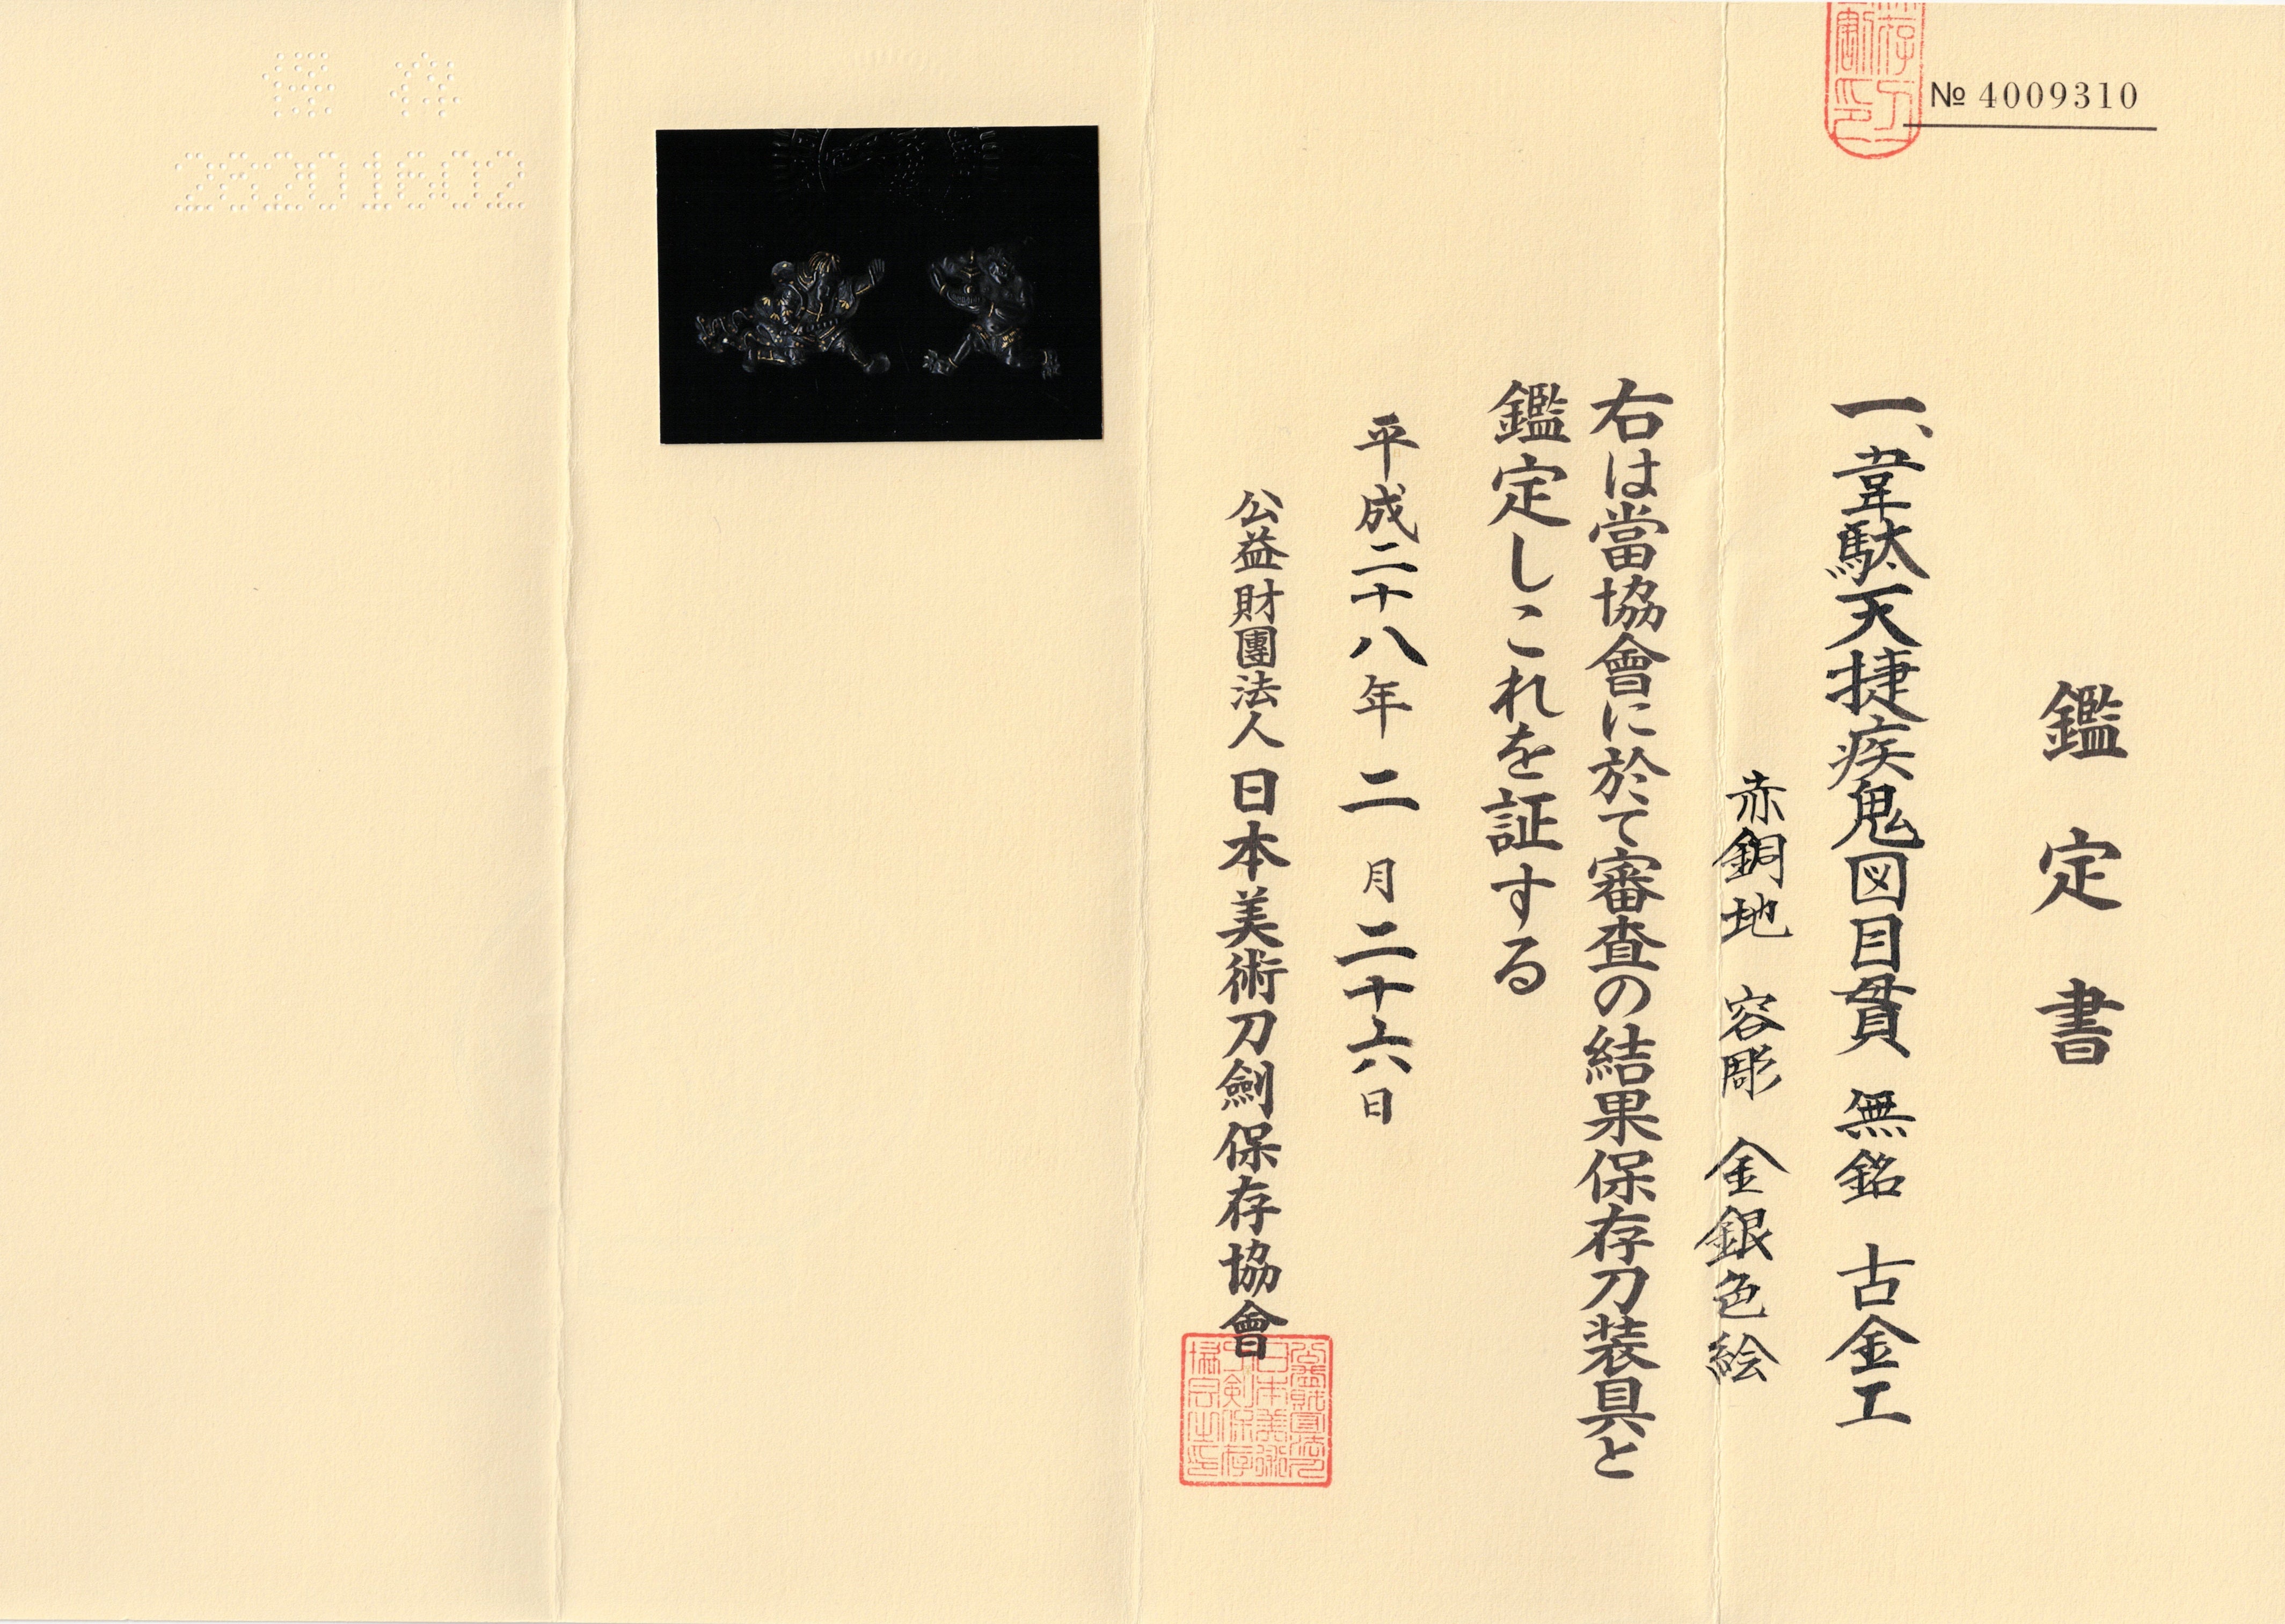 № 4009310
鑑定書
一、韋駄天捷疾鬼図目貫 無銘 古金工
赤銅地 容彫 金銀色絵
右は當協會に於て審査の結果保存刀装具と
鑑定しこれを証する
平成二十八年 二 月 二十六 日
公益財團法人 日本美術刀劍保存協會
公益財団法人
日本美術
刀剣保存
協会之印
保存
28201602